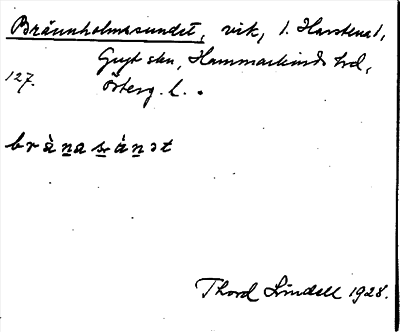 Bräunholmasundet, vik, 1. Harstena 1,
Gryt skn, Hammarkinds hd,
127. Österg. l.
bràna sánət
Thord Lindell 1928.